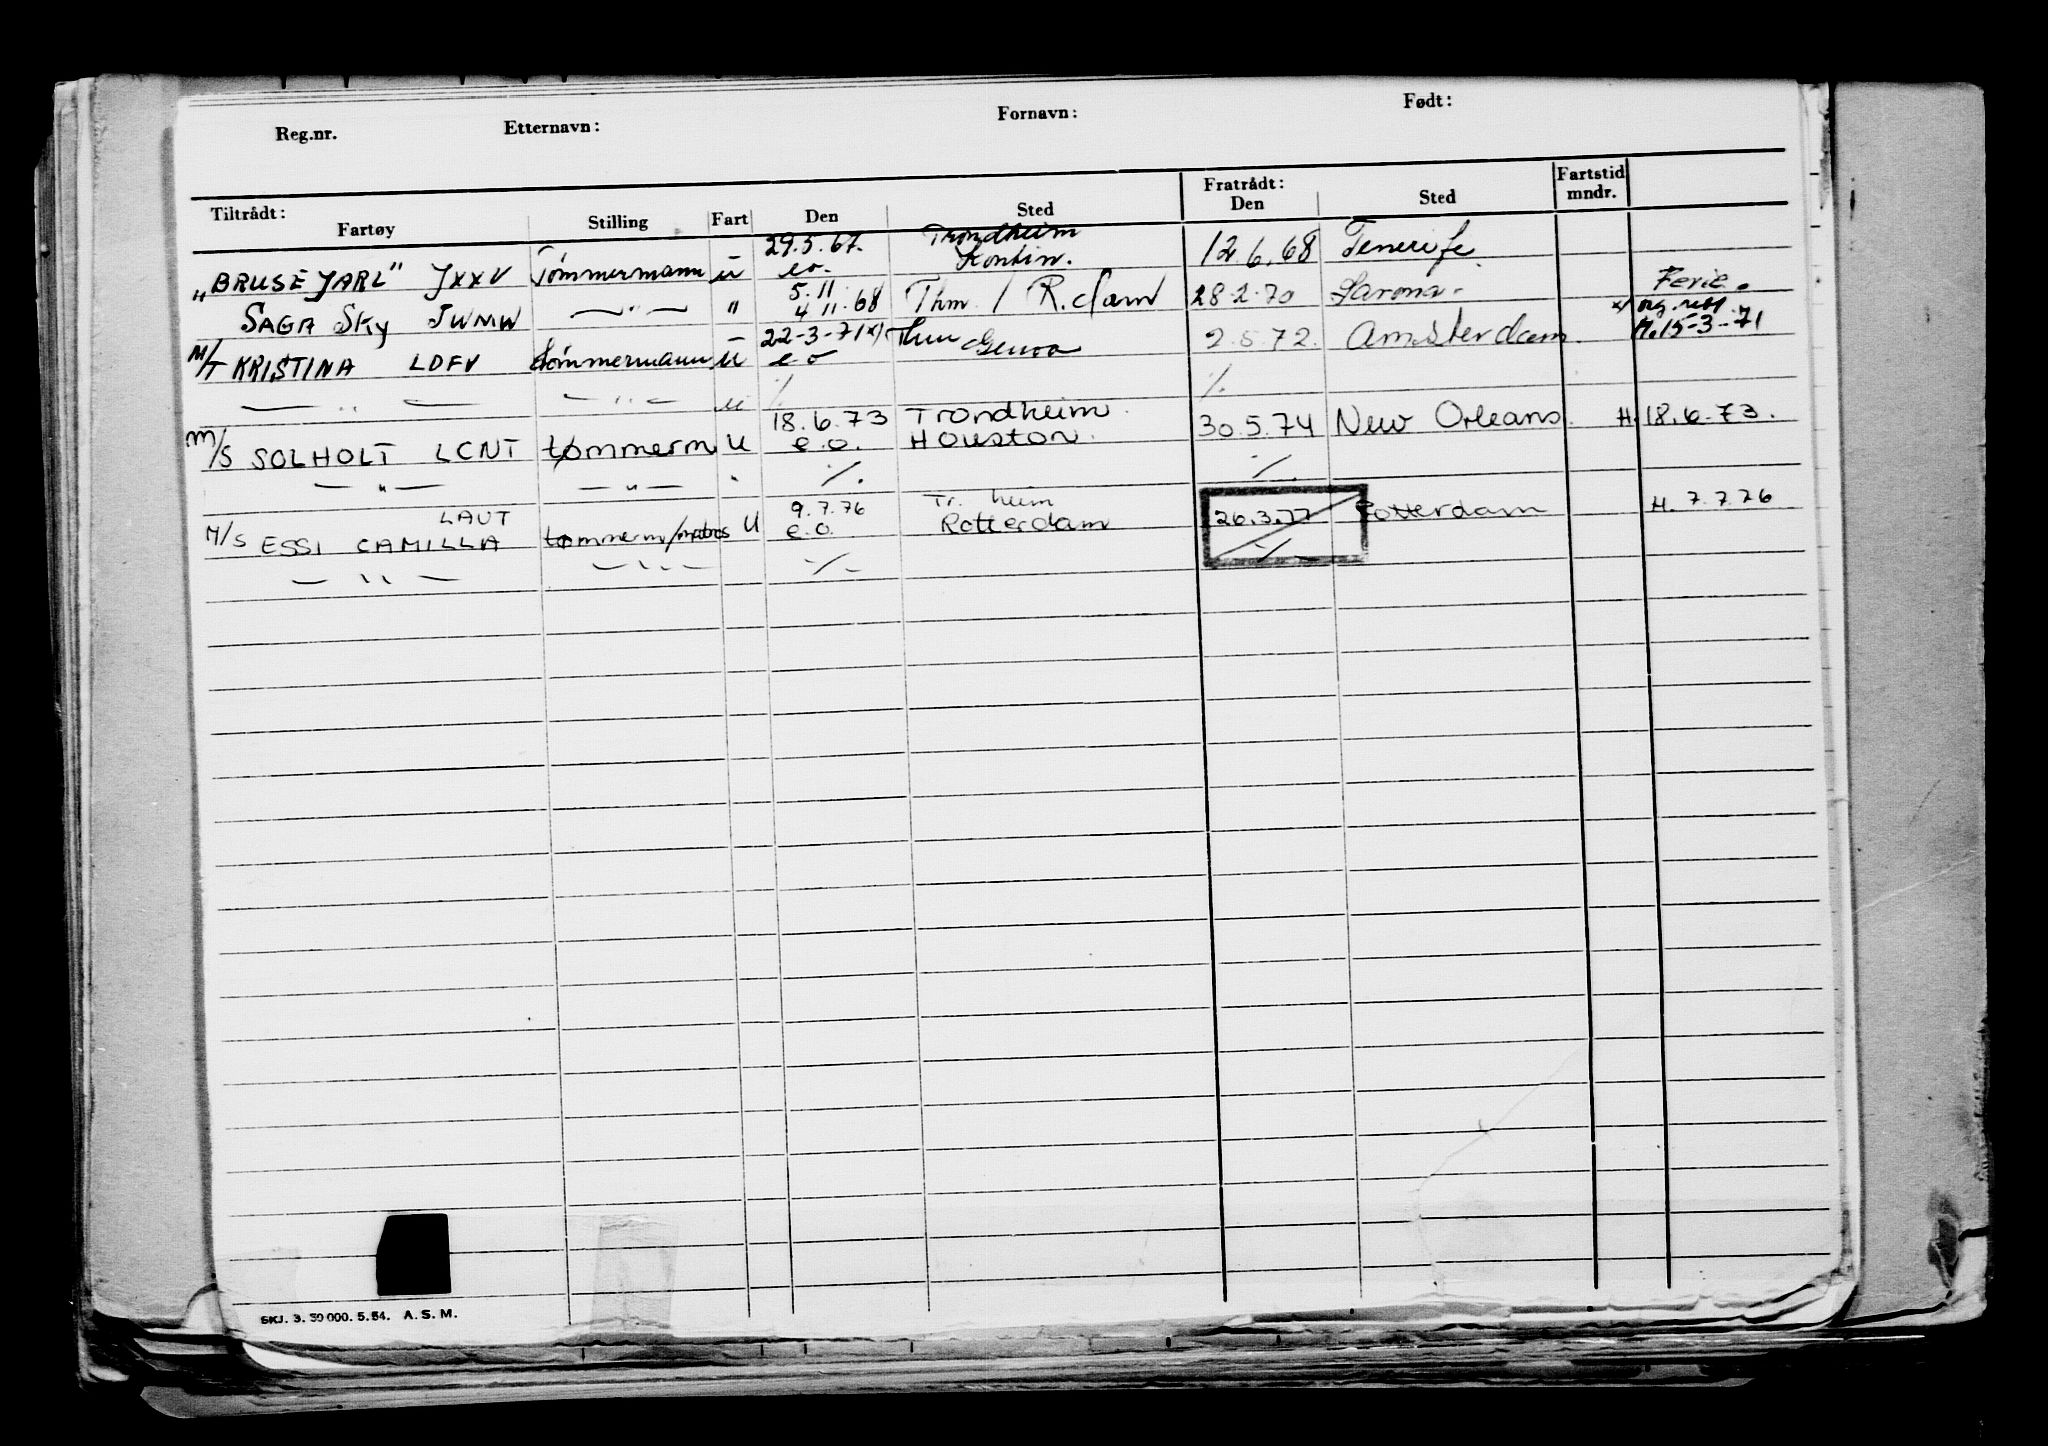 Reg.nr. Etternavn: Fornavn: Født:
Tiltrådt: Fratrådt: Fartstid
Fartøy Stilling Fart Den Sted Den Sted mndr.
29.5.67. Trondheim
"BRUSE JARL" JXXV Tømmermann u eo. Kontin. 12.6.68 Tenerife
5.11
SAGA SKY JWMW — " — " 4 11.68 Thm / R.dam 28.2.70 Savona. Ferie.
22-3-71 x) Thm x/
M/T KRISTINA LDFV tømmermann u eo Genoa 2.5.72. Amsterdam. H.15-3-71
— " — — " — u ./. ./.
18.6.73 Trondheim.
M/S SOLHOLT LCNT tømmerm U e.o. Houston. 30.5.74 New Orleans. H. 18.6.73.
— " — — " — " ./. ./.
LAUT 9.7.76 Tr. heim
M/S ESSI CAMILLA tømmerm/matros U e.o. Rotterdam 26.3.77 Rotterdam H. 7.7.76
— " — — " — ./. ./.
SKJ. 3. 50 000. 5.64. A. S. M.